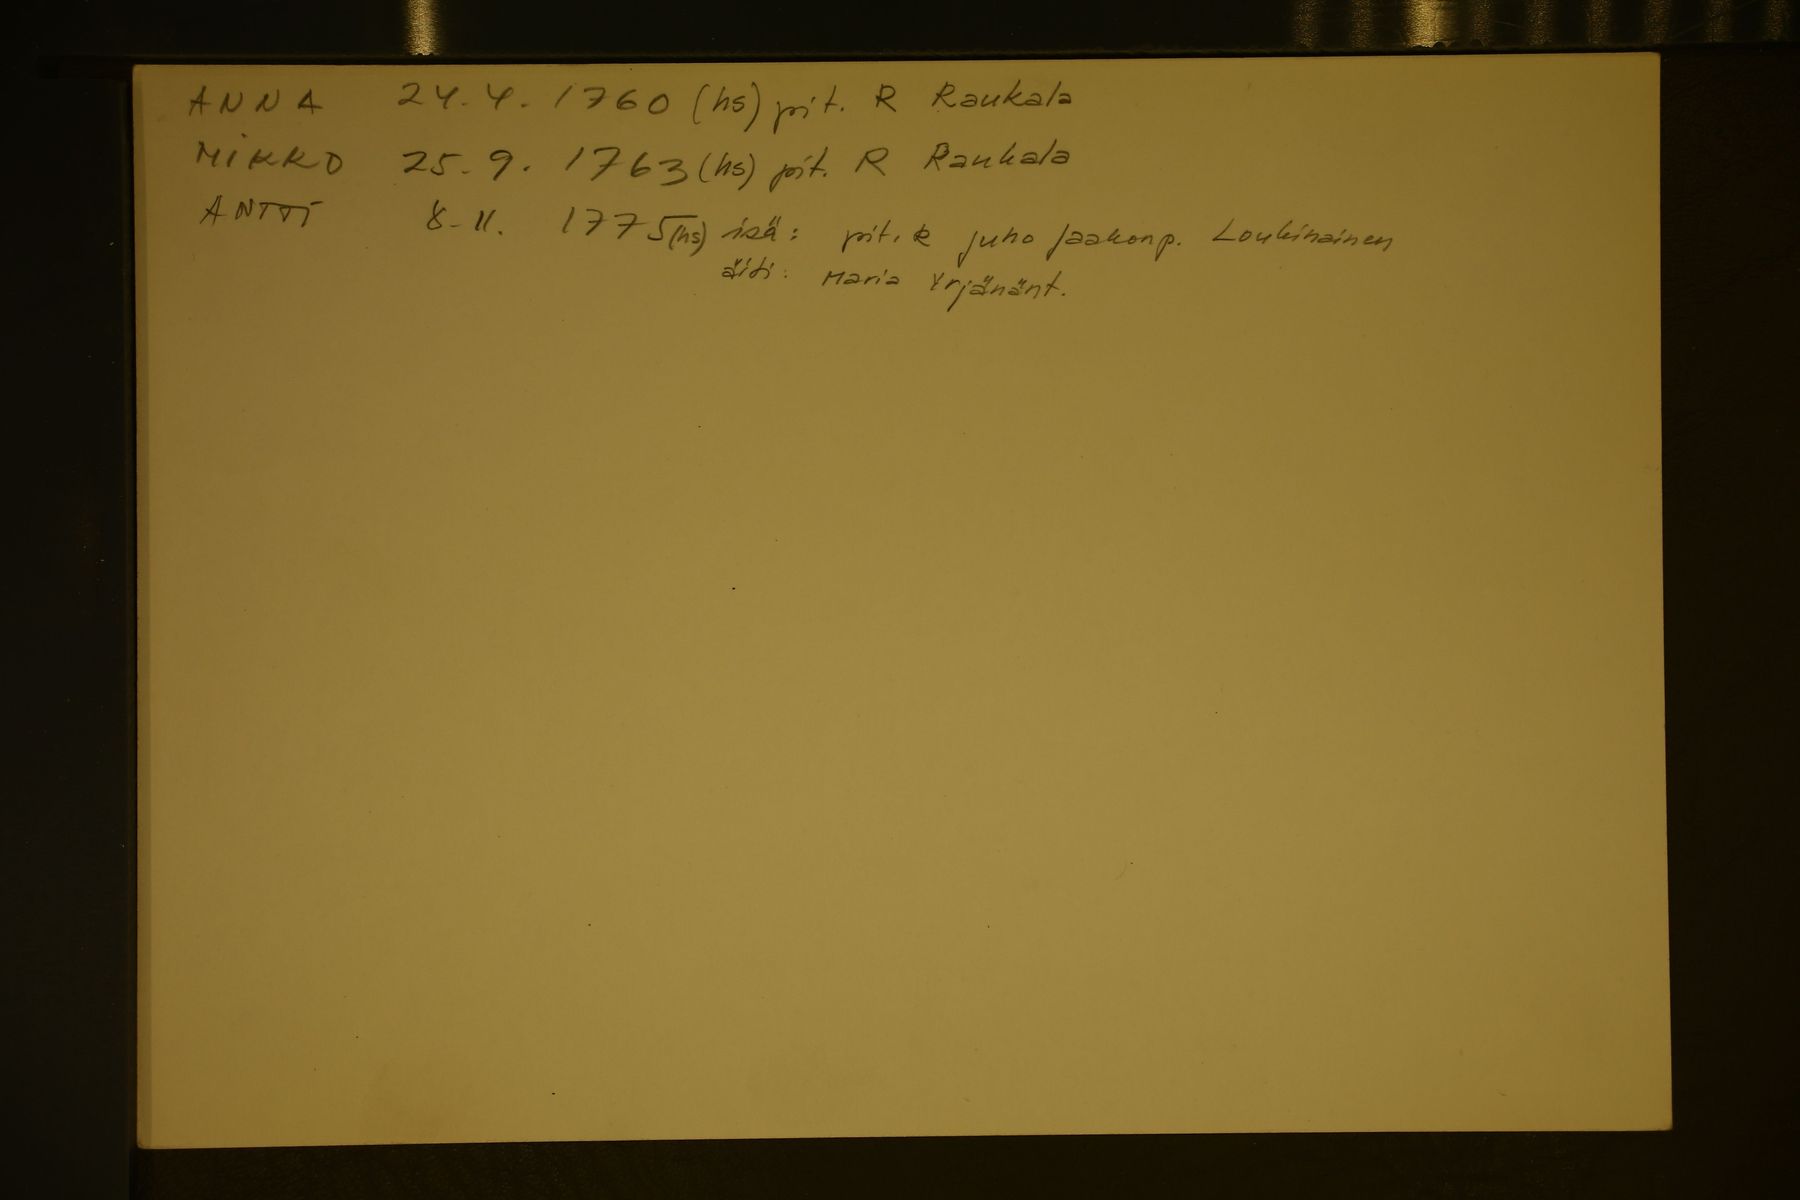 ANNA 24.4. 1760 (hs) pit. R Raukala
MIKKO 25.9. 1763 (hs) pit. R Raukala
ANTTI 8-11. 1775 (hs) isä: pit. R Juho Jaakonp. Loukinainen
äiti: Maria Yrjänänt.